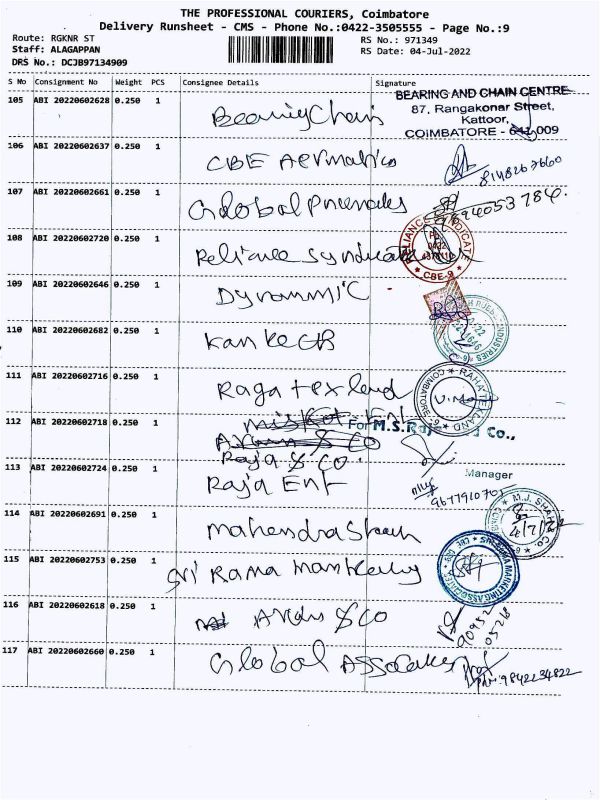 THE PROFESSIONAL COURIERS, Coimbatore
Delivery Runsheet - CMS - Phone No.:0422-3505555 - Page No.:9
Route: RGKNR ST
RS No.: 971349
Staff: ALAGAPPAN
RS Date: 04-Jul-2022
DRS No.: DCJB97134909
S No Consignment No Weight PCS Consignee Details Signature
105 ABI 20220602628 0.250 1 Bearing Chain
BEARING AND CHAIN CENTRE
87, Rangakonar Street,
Kattoor,
COIMBATORE - 641 009
106 ABI 20220602637 0.250 1 CBE
8148267660
107 ABI 20220602661 0.250 1 Global
9894053784.
108 ABI 20220602720 0.250 1 Reliance Syndicate
RELIANCE SYNDICATE
CBE-9
109 ABI 20220602646 0.250 1 Dynammic
INDUSTRIES
110 ABI 20220602682 0.250 1
111 ABI 20220602716 0.250 1 Raga texland
RAHA TEXLAND
COIMBATORE
112 ABI 20220602718 0.250 1 Ent
& CO
For M.S.Raj Co.,
Raja & CO.
113 ABI 20220602724 0.250 1 Raja Ent
Manager
114 ABI 20220602691 0.250 1 Mahendra
M.J. SHAH
4/7/22
115 ABI 20220602753 0.250 1 Sri Rama
SRI RAMA MARKETING ASSOCIATES
116 ABI 20220602618 0.250 1 & CO
90952
05268
117 ABI 20220602660 0.250 1 Global Assocates
9842234822